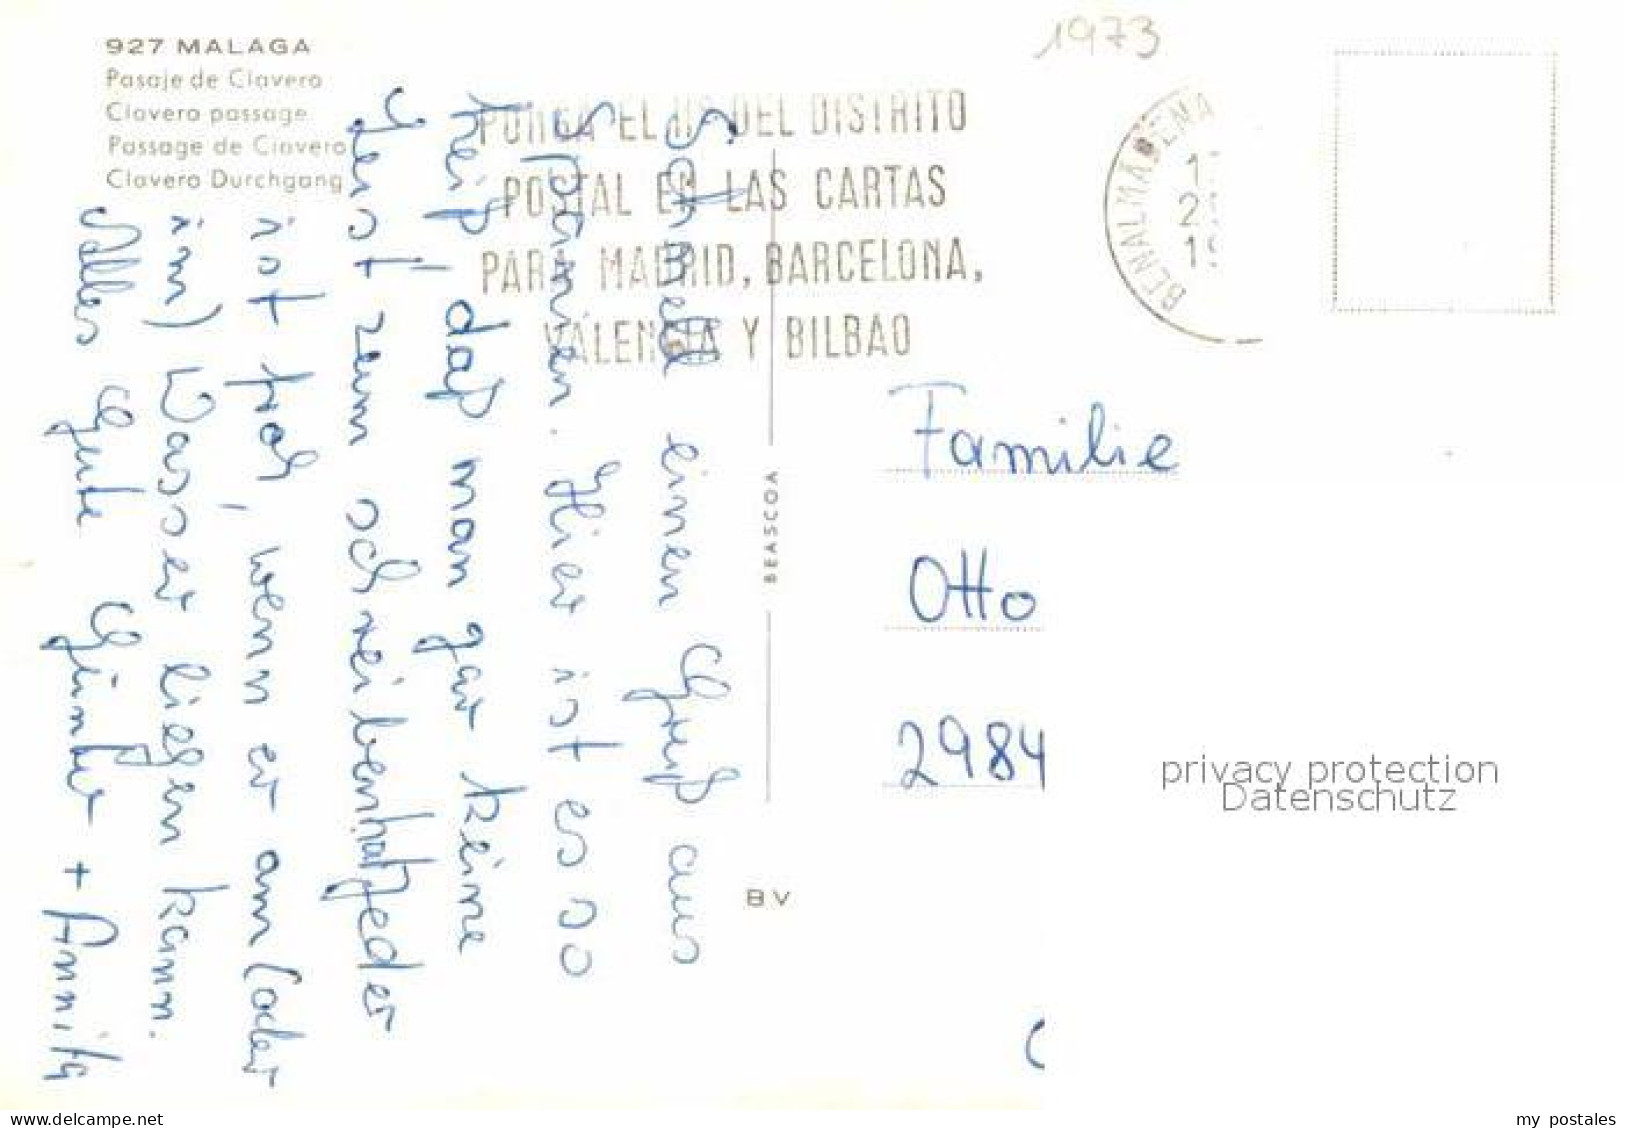 927 MALAGA
Pasaje de Clavero
Clavero passage
Passage de Clavero
Clavero Durchgang
1973
PONGA EL Nº DEL DISTRITO
POSTAL EN LAS CARTAS
PARA MADRID, BARCELONA,
VALENCIA Y BILBAO
BENALMADENA
Schnell einen Gruß aus
Spanien. Hier ist es so
heiß daß man gar keine
Lust zum schreiben hat, jeder
ist froh, wenn er am (oder
im) Wasser liegen kann.
Alles Gute Günter + Annita
BEASCOA
BV
Familie
Otto
2984
privacy protection
Datenschutz
delcampe.net
my_postales